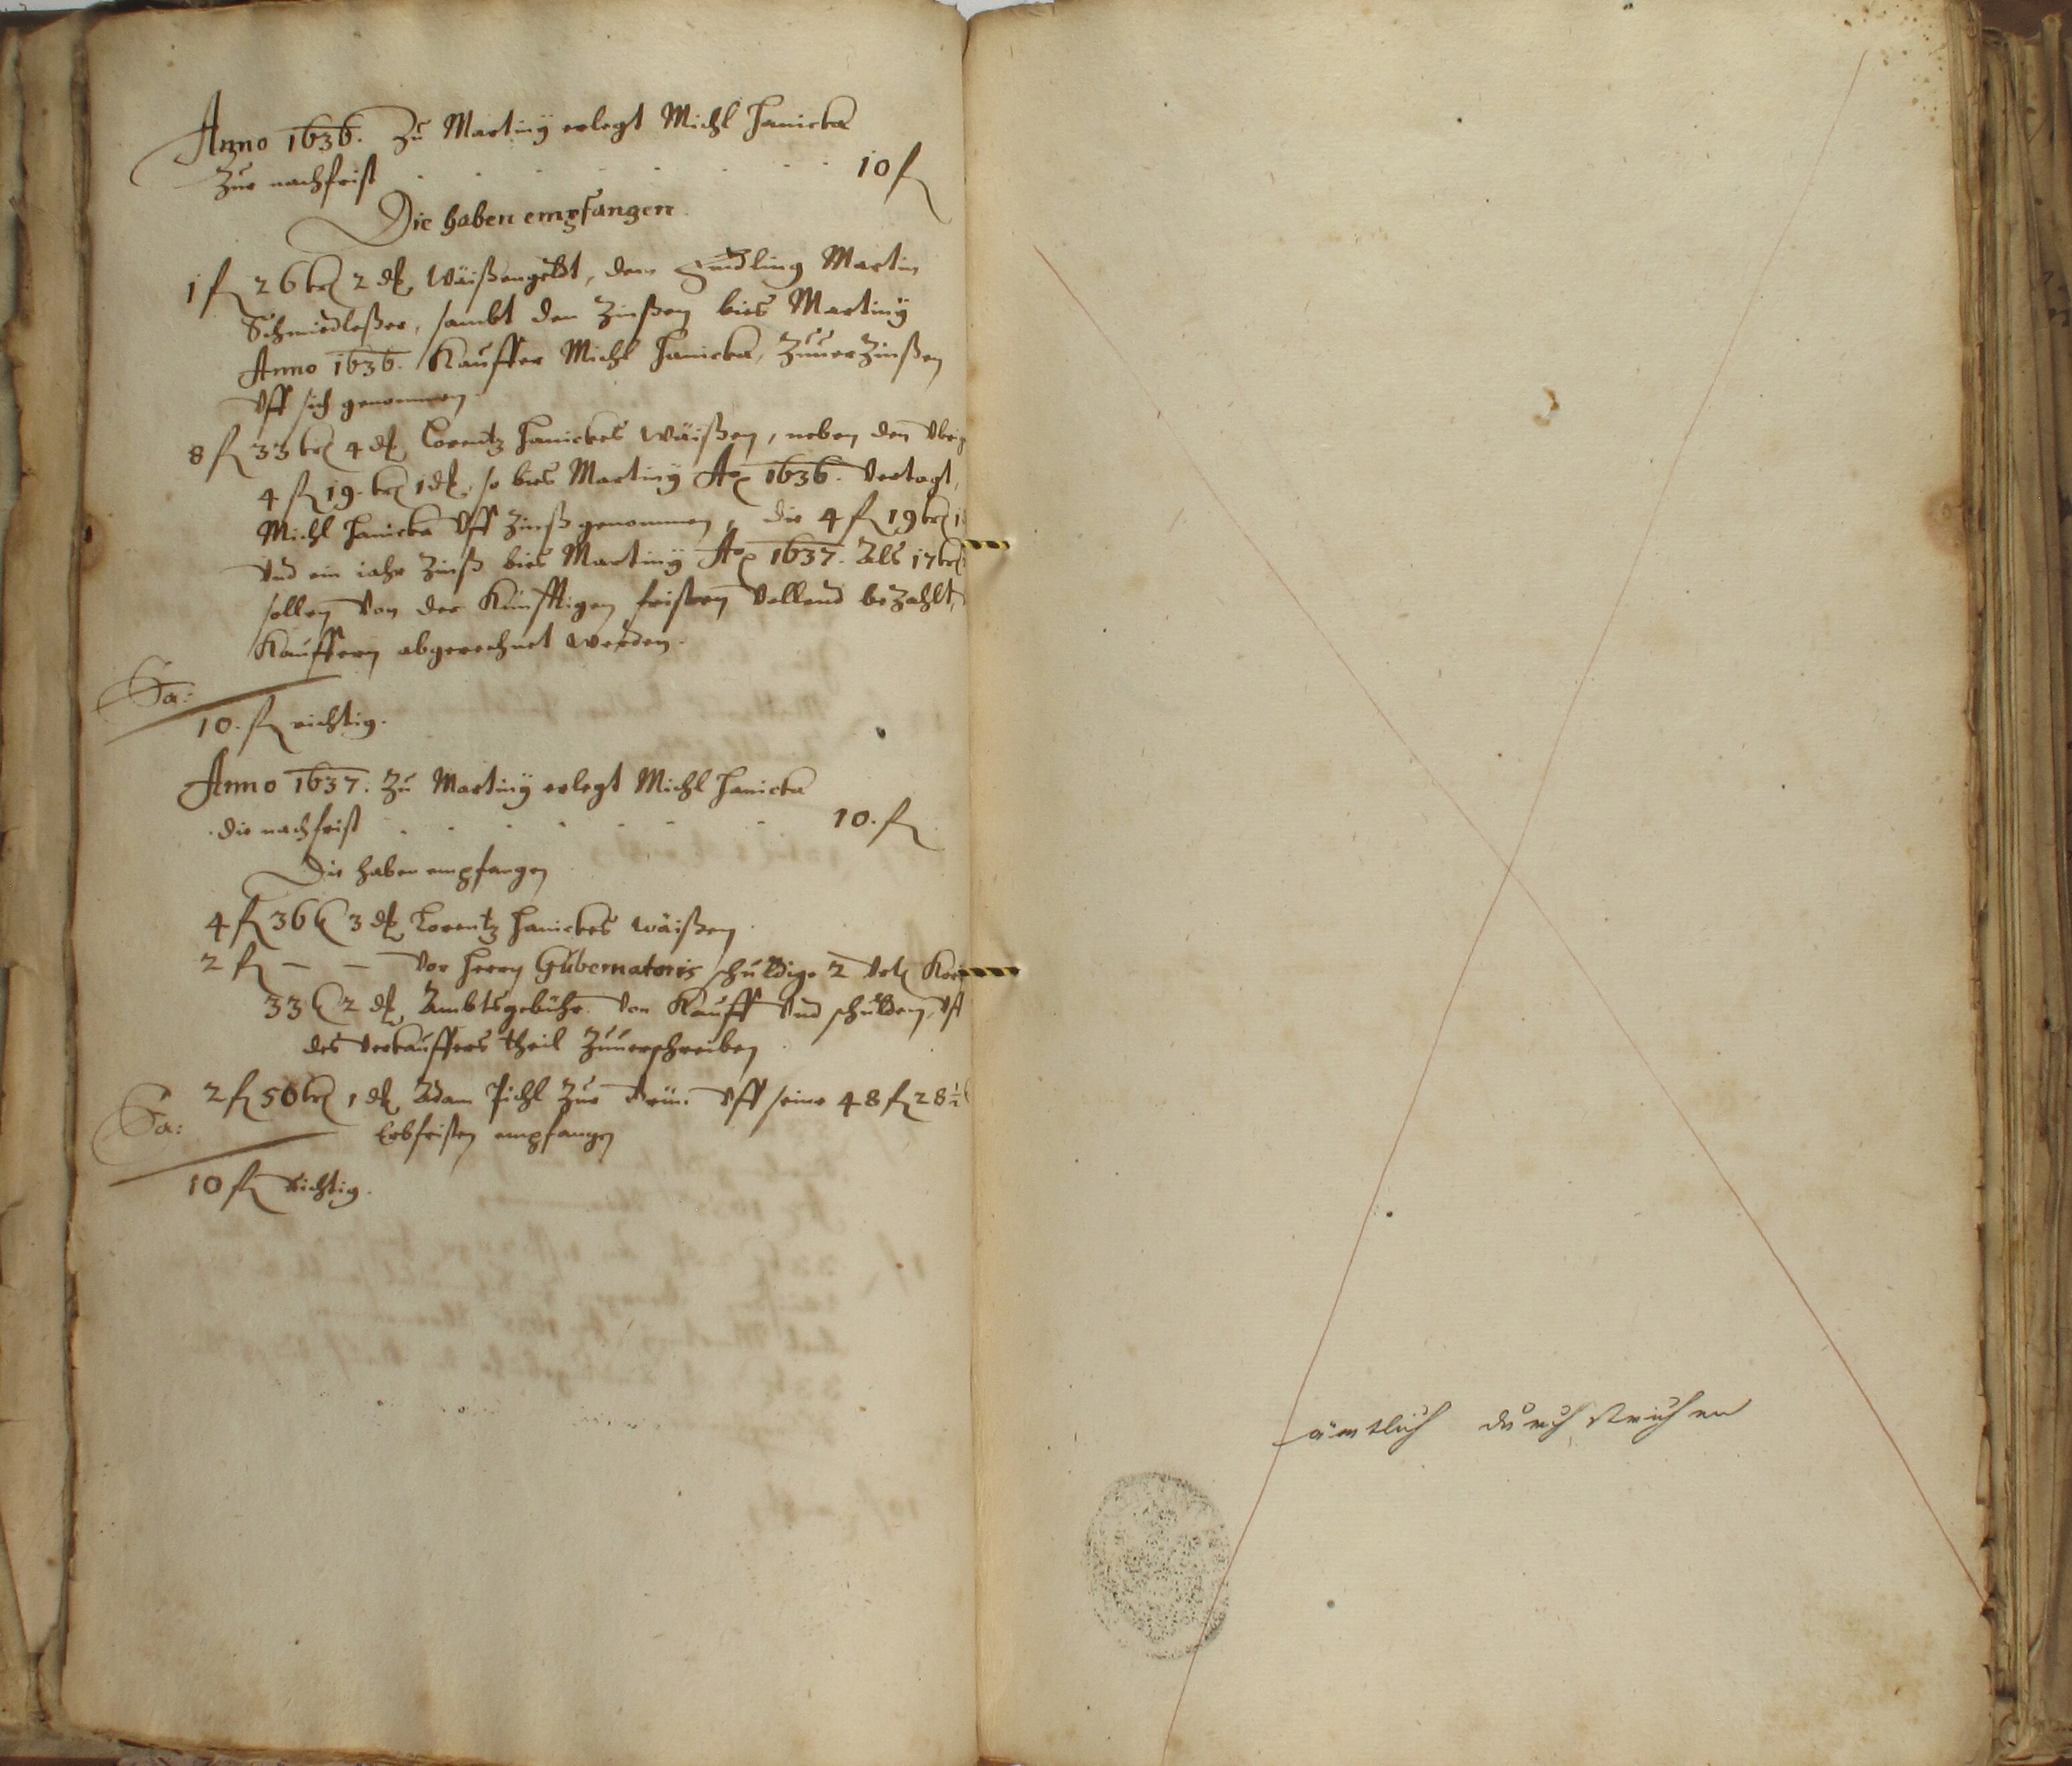 Anno 1636. Zu Martiny erlegt Michl Hanicka
Zur nachfrist 10 fl
Die haben empfangen
1 fl 26 kr 2 d Wäißengeldt, dem Findling Martin
sambt den Zinßen bies Martiny
Anno 1636. Kauffer Michl Hanicka, Zuuerzinßen
Vff sich genommen
8 fl 33 kr 4 d Lorentz Hanickes Wäißen, neben den
4 fl 19 kr 1 d, so bies Martiny Ao 1636. Vertagt,
Michl Hanicka Vff Zinß genommen, die 4 fl 19 kr
Vnd ein iahr Zinß bies Martiny Ao 1637. Als 17 kr
sollen Von der Künfftigen fristen Vollend bezahlt,
Kauffern abgerechnet werden.
Sa:
10. fl richtig.
Anno 1637. Zu Martiny erlegt Michl Hanicka
die nachfrist 10. fl
Die haben empfangen
4 fl 36 kr 3 d Lorentz Hanickes Wäißen
2 fl – – Vor Herrn Gubernatoris schuldige 2
33 kr 2 d Ambtsgebühr Von Kauff Vnd schulden,
des Verkauffers theil Zuuerschreiben
2 fl 50 kr 1 d Adam Pichl Zur Vff seine 48 fl 28 ½
Erbfristen empfangen
Sa:
10 fl Richtig.
ämtlich durchstrichen